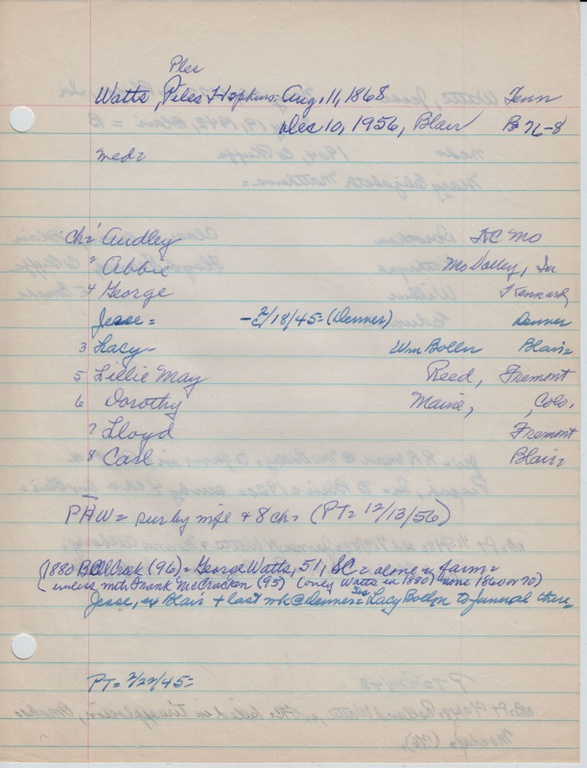 Ples
Watts, Piles Hopkins - Aug. 11, 1868 Tenn
Dec 10, 1956, Blair B 76-8
med =
ch = 1 Audley KC Mo
2 Abbie Mo Valley, Ia
4 George Kennard
Jesse = - 2/18/45 = (Denver) Denver
3 Lacy - Wm Bolln Blair =
5 Lillie May Reed, Fremont
6 Dorothy Maine, Colo.
7 Lloyd Fremont
8 Carl Blair =
PHW = sur by wife + 8 ch = (PT = 12/13/56)
(1880 Creek (96) = George Watts, 51, SC = alone farm =
(unless mth Frank McCracken (95) (only Watts in 1880) none 1860 or 70)
Jesse, ex Blair + last wk @ Denver = Lacy Bolln to funeral there
PT = 2/22/45 =